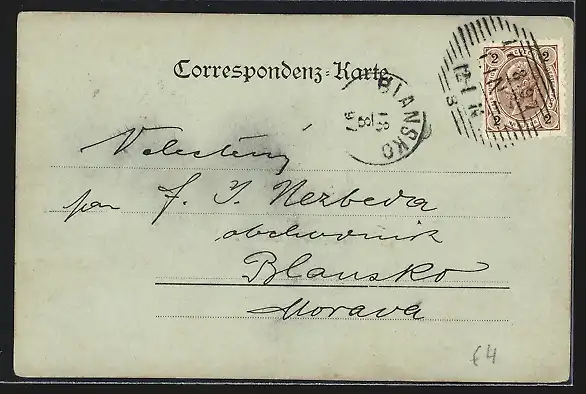 Correspondenz-Karte
BLANSKO
18
8
97
2 2
2 2
Velectěný
pan F. J. Nezbeda
obchodník
Blansko
Morava
£4